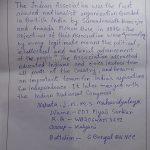 The Indian Association was the first
avowed nationalist organization founded
in British India by Surendranath Banerjee
and Ananda Mohan Bose in 1876. The
objectives of this Association were "promoting
by every legal means the political,
intellectual and material advancement
of the people". The Association attracted
educated Indians and civic leaders from
all parts of the country, and became
an important forum for India's aspirations
for independence. It later merged with
the Indian National Congress.
Name - CDT Piyali Sarkar
Group - Kalyani
Battalion - Bengal BN NCC